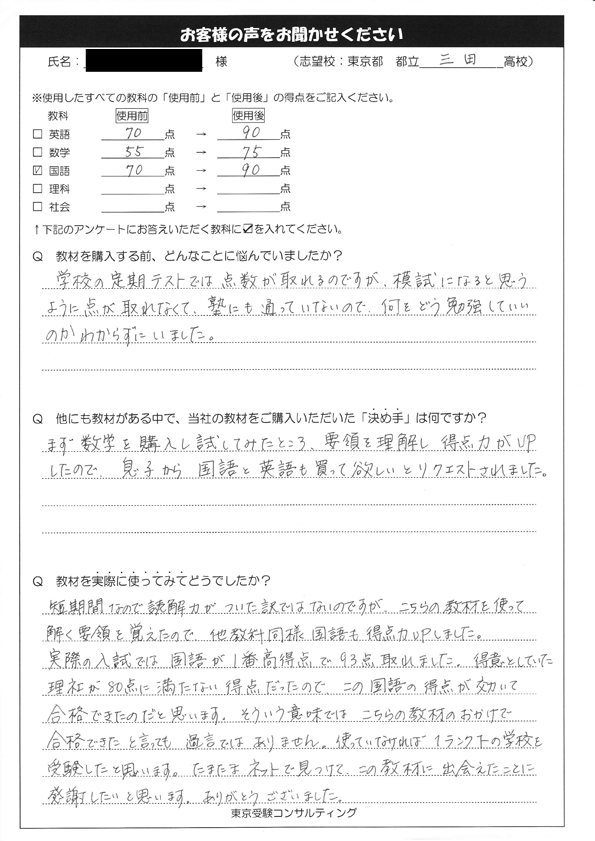 お客様の声をお聞かせください
氏名： 様 （志望校：東京都 都立 三田 高校）
※使用したすべての教科の「使用前」と「使用後」の得点をご記入ください。
教科 使用前 使用後
□ 英語 70 点 → 90 点
□ 数学 55 点 → 75 点
☑ 国語 70 点 → 90 点
□ 理科 点 → 点
□ 社会 点 → 点
↑下記のアンケートにお答えいただく教科に☑を入れてください。
Q 教材を購入する前、どんなことに悩んでいましたか？
学校の定期テストでは点数が取れるのですが、模試になると思う
ように点が取れなくて、塾にも通っていないので、何をどう勉強していい
のかわからずにいました。
Q 他にも教材がある中で、当社の教材をご購入いただいた「決め手」は何ですか？
まず数学を購入し試してみたところ、要領を理解し得点力がUP
したので、息子から国語と英語も買って欲しいとリクエストされました。
Q 教材を実際に使ってみてどうでしたか？
短期間なので読解力がついた訳ではないのですが、こちらの教材を使って
解く要領を覚えたので、他教科同様国語も得点力UPしました。
実際の入試では国語が1番高得点で93点取れました。得意としていた
理社が80点に満たない得点だったので、この国語の得点が効いて
合格できたのだと思います。そういう意味ではこちらの教材のおかげで
合格できたと言っても過言ではありません。使っていなければ1ランク下の学校を
受験したと思います。たまたまネットで見つけて、この教材に出会えたことに
感謝したいと思います。ありがとうございました。
東京受験コンサルティング